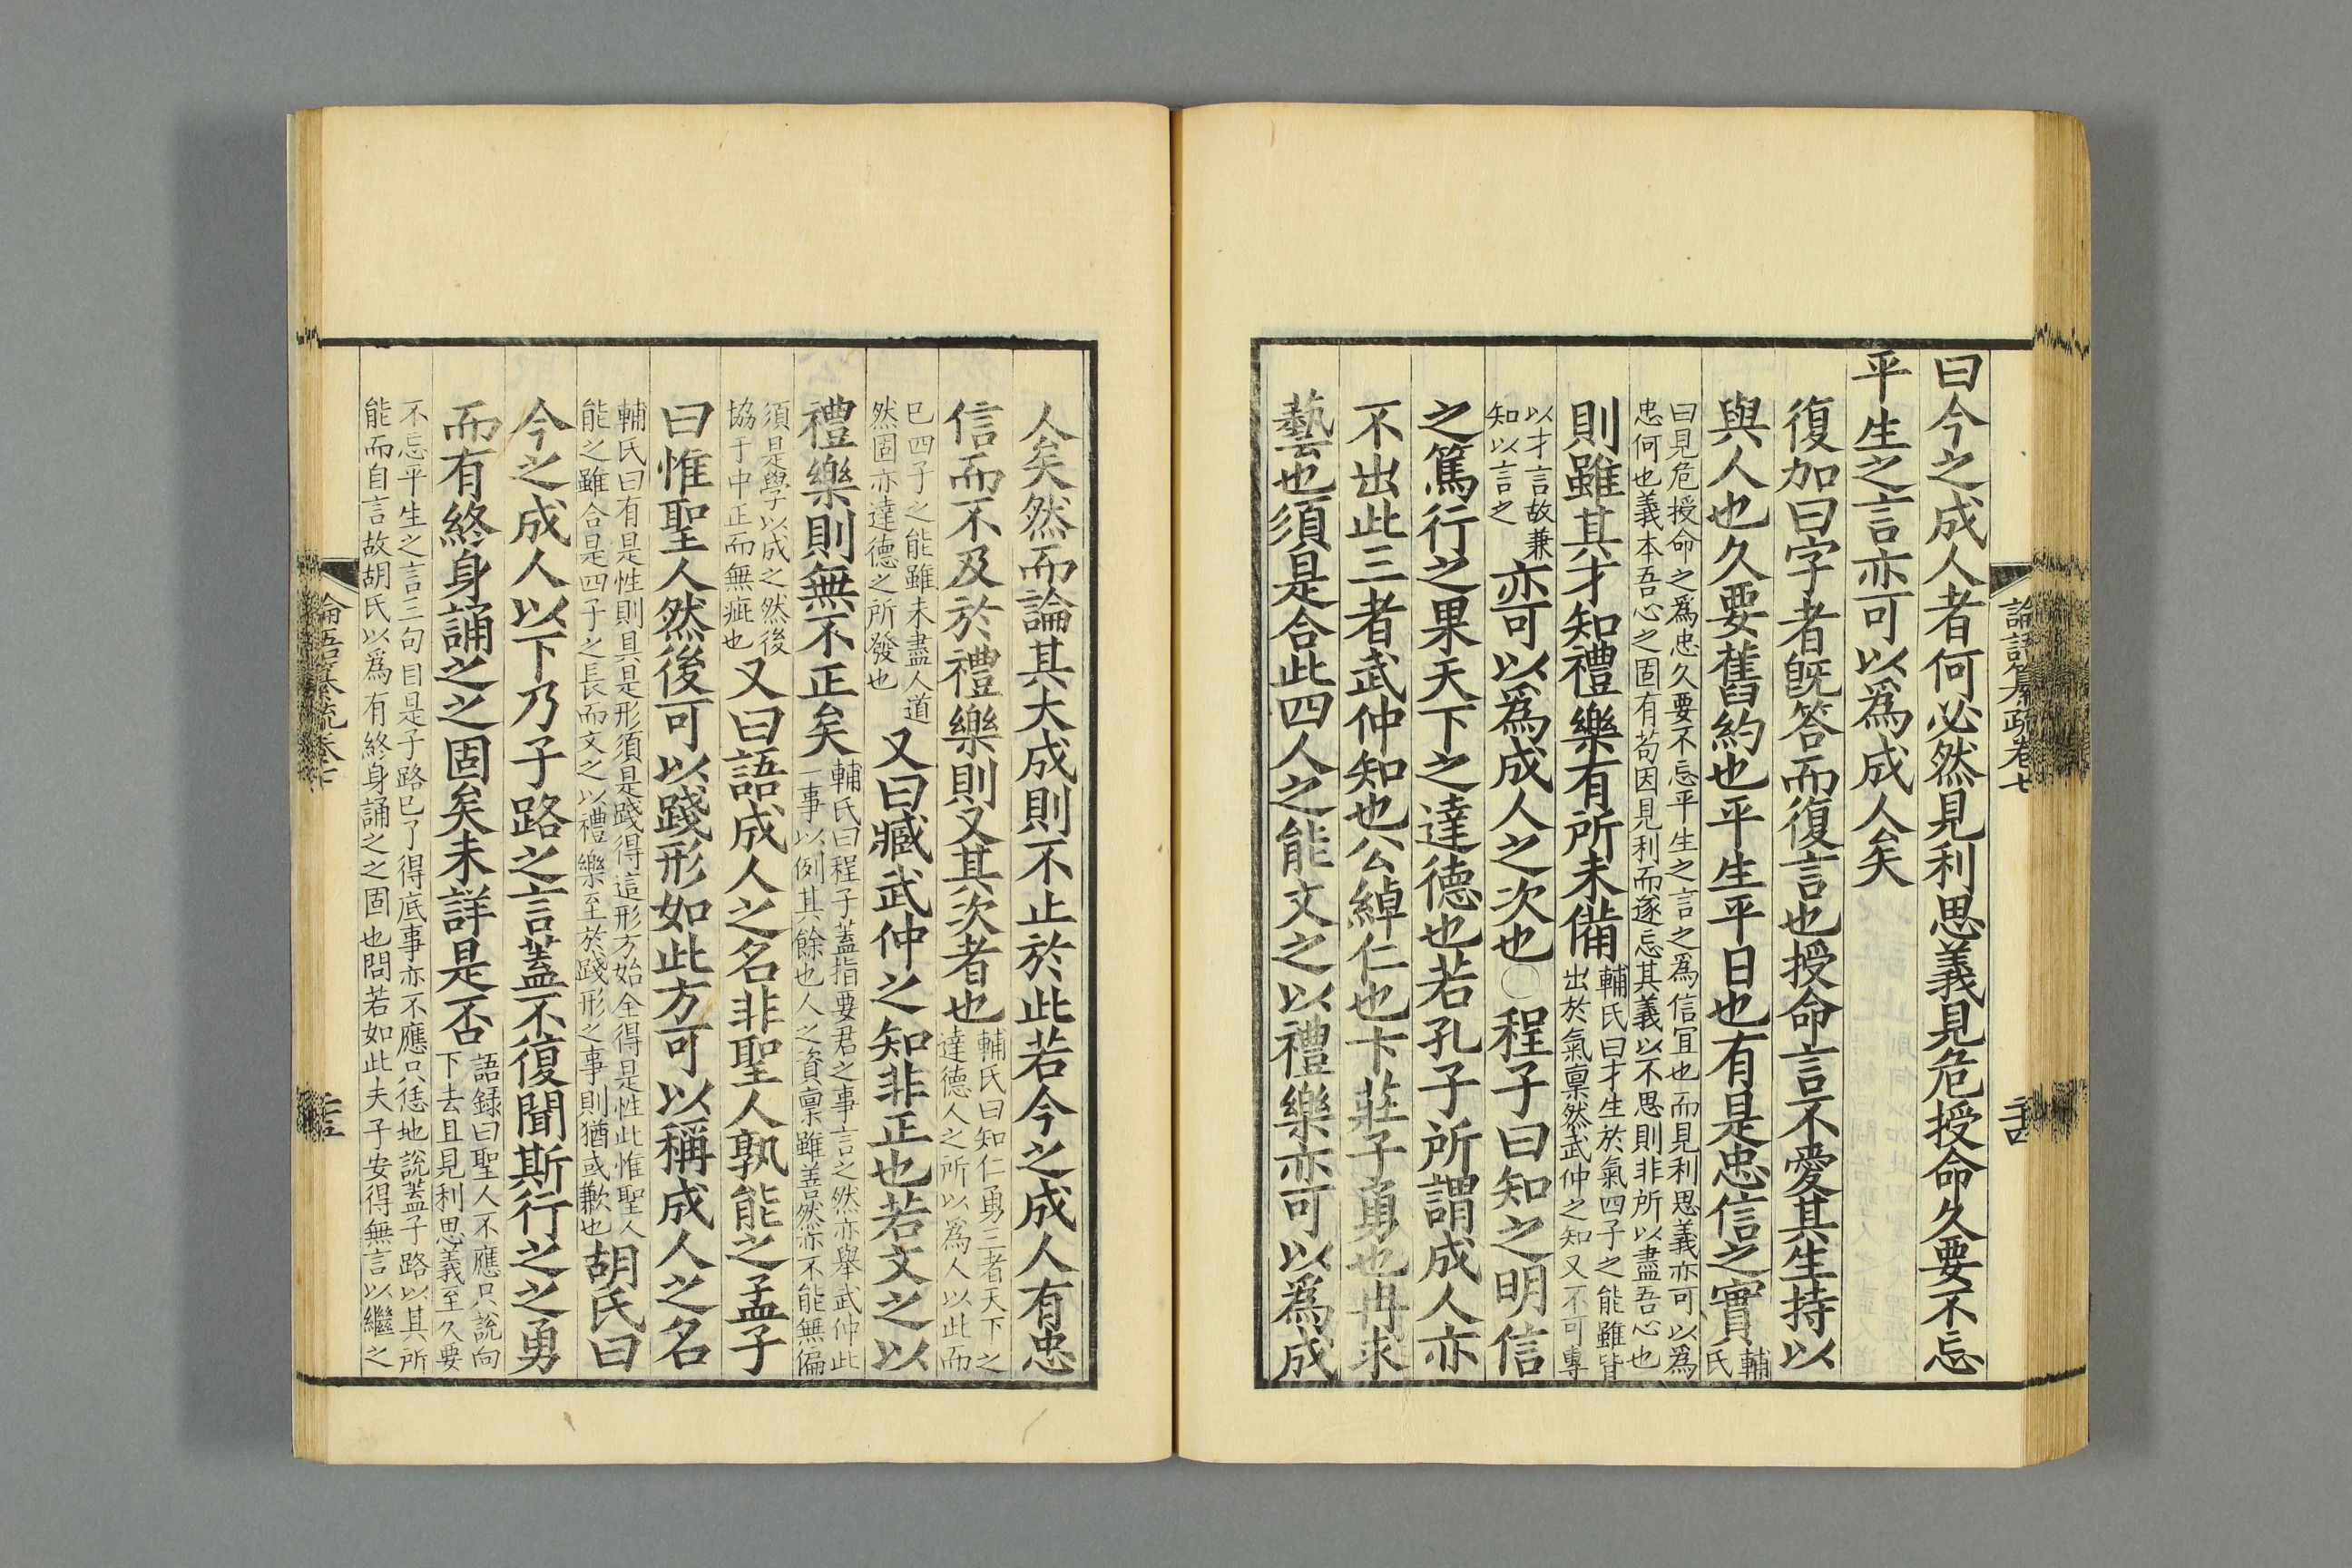 曰今之成人者何必然見利思義見危授命久要不忘
平生之言亦可以爲成人矣
復加曰字者旣答而復言也授命言不愛其生持以
與人也久要舊約也平生平日也有是忠信之實輔
氏
曰見危授命之爲忠久要不忘平生之言之爲信宜也而見利思義亦可以爲
忠何也義本吾心之固有苟因見利而遂忘其義以不思則非所以盡吾心也
則雖其才知禮樂有所未備輔氏曰才生於氣四子之能雖皆
出於氣稟然武仲之知又不可專
以才言故兼
知以言之
亦可以爲成人之次也○程子曰知之明信
之篤行之果天下之達德也若孔子所謂成人亦
不出此三者武仲知也公綽仁也卞莊子勇也冉求
藝也須是合此四人之能文之以禮樂亦可以爲成
論語纂疏卷七
二十四
人矣然而論其大成則不止於此若今之成人有忠
信而不及於禮樂則又其次者也輔氏曰知仁勇三者天下之
達德人之所以爲人以此而
已四子之能雖未盡人道
然固亦達德之所發也
又曰臧武仲之知非正也若文之以
禮樂則無不正矣輔氏曰程子蓋指要君之事言之然亦舉武仲此
一事以例其餘也人之資稟雖善然亦不能無偏
須是學以成之然後
協于中正而無疵也
又曰語成人之名非聖人孰能之孟子
曰惟聖人然後可以踐形如此方可以稱成人之名
輔氏曰有是性則具是形須是踐得這形方始全得是性此惟聖人
能之雖合是四子之長而文之以禮樂至於踐形之事則猶或歉也
胡氏曰
今之成人以下乃子路之言蓋不復聞斯行之之勇
而有終身誦之之固矣未詳是否語録曰聖人不應只說向
下去且見利思義至久要
不忘平生之言三句自是子路已了得底事亦不應只恁地說蓋子路以其所
能而自言故胡氏以爲有終身誦之之固也問若如此夫子安得無言以繼之
論語纂疏卷七
二十五